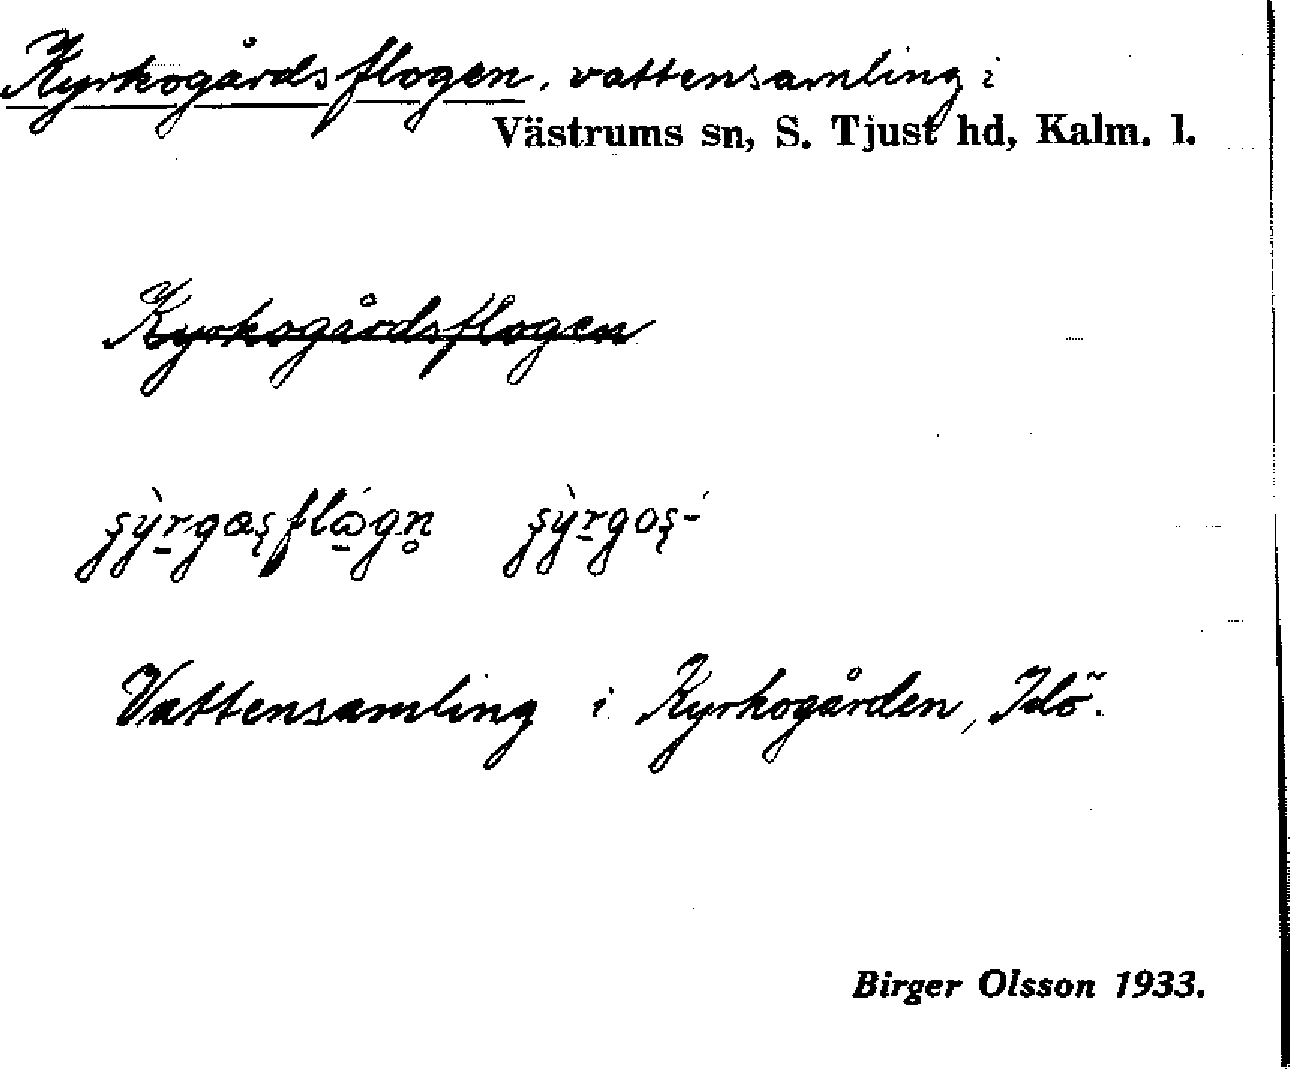 Kyrkogårdsflogen, vattensamling i
Västrums sn, S. Tjust hd, Kalm. l.
Kyrkogårdsflogen
Vattensamling i Kyrkogården, Idö.
Birger Olsson 1933.